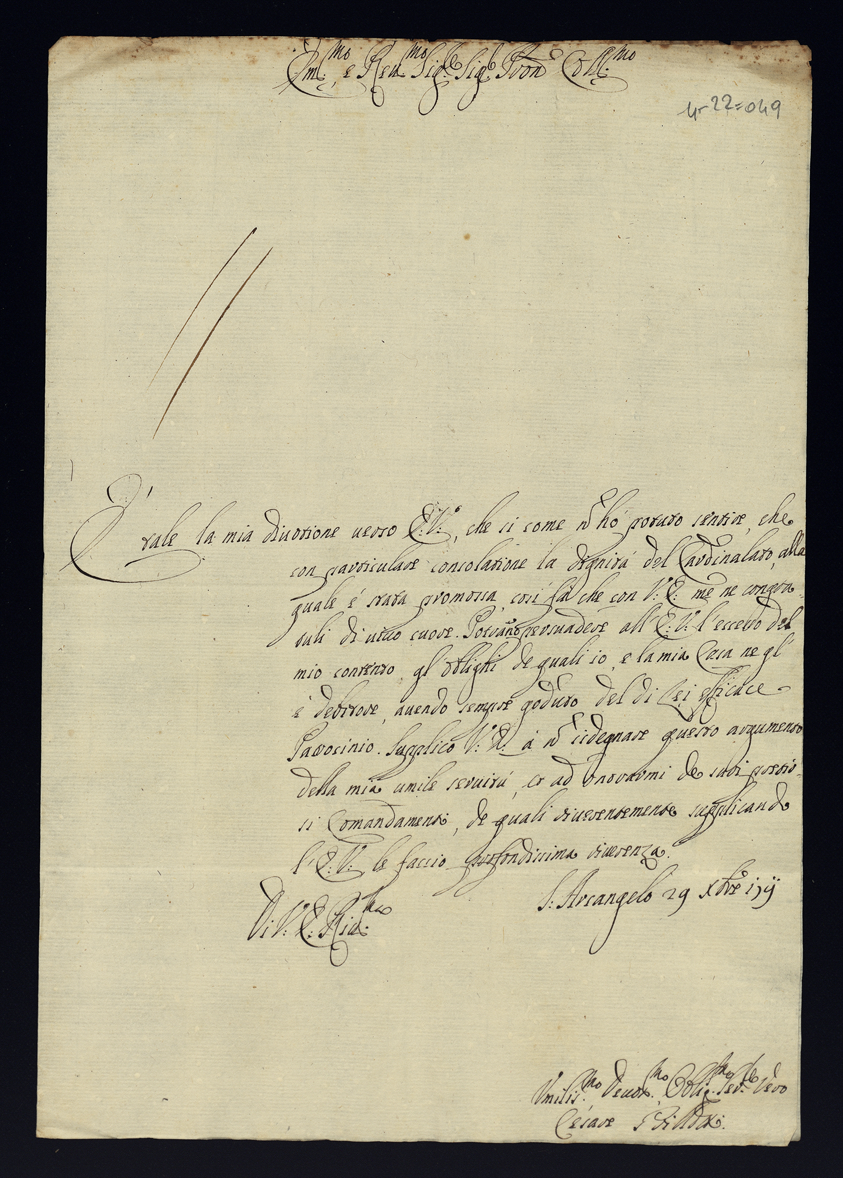 Em:mo e Reu:mo Sig:re Sig:re Pron:e Coll:mo
4-22=049
È tale la mia diuotione uerso l'E:V:a, che si come ñ hò potuto sentire, che
con particulare consolatione la dignità del Cardinalato, alla
quale è stata promossa, così fà che con V: E: me ne congra-
tuli di uiuo cuore. Potranno persuadere all'E:V: l'eccesso del
mio contento, gl'oblighi de quali io, e la mia Casa ne gl'
è debitore, auendo sempre goduto del di Lei efficace
Patrocinio. Supplico V: E: à ñ isdegnare questo argumento
della mia umile seruitù, et ad onorarmi de suoi pretio-
si Comandamenti, de quali riuerentemente supplicando
l'E: V: le faccio profondissima riuerenza.
Di V: E: Riu:ma
S: Arcangelo 29 Xbre
Vmilis:mo Deuot:mo Oblig:mo Ser:re Vero
Cesare